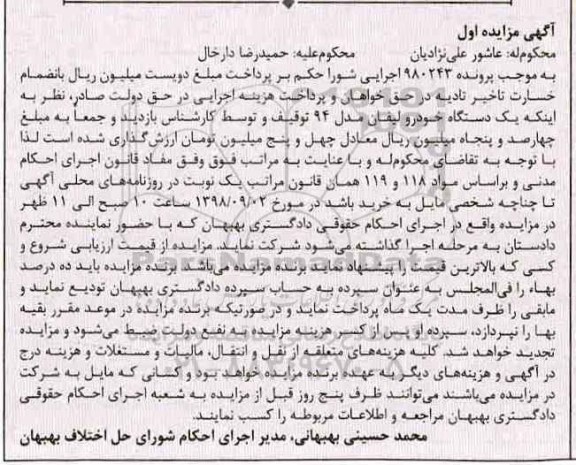 آگهی مزایده اول
محکوم‌له: عاشور علی‌نژادیان محکوم‌علیه: حمیدرضا دارخال
به موجب پرونده ۹۸۰۲۴۳ اجرایی شورا حکم بر پرداخت مبلغ دویست میلیون ریال بانضمام
خسارت تاخیر تادیه در حق خواهان و پرداخت هزینه اجرایی در حق دولت صادر، نظر به
اینکه یک دستگاه خودرو لیفان مدل ۹۴ توقیف و توسط کارشناس بازدید و جمعاً به مبلغ
چهارصد و پنجاه میلیون ریال معادل چهل و پنج میلیون تومان ارزش‌گذاری شده است لذا
با توجه به تقاضای محکوم‌له و با عنایت به مراتب فوق وفق مفاد قانون اجرای احکام
مدنی و براساس مواد ۱۱۸ و ۱۱۹ همان قانون مراتب یک نوبت در روزنامه‌های محلی آگهی
تا چناچه شخصی مایل به خرید باشد در مورخ ۱۳۹۸/۰۹/۰۲ ساعت ۱۰ صبح الی ۱۱ ظهر
در مزایده واقع در اجرای احکام حقوقی دادگستری بهبهان که با حضور نماینده محترم
دادستان به مرحله اجرا گذاشته می‌شود شرکت نماید. مزایده از قیمت ارزیابی شروع و
کسی که بالاترین قیمت را پیشنهاد نماید برنده مزایده می‌باشد. برنده مزایده باید ده درصد
بهاء را فی‌المجلس به عنوان سپرده به حساب سپرده دادگستری بهبهان تودیع نماید و
مابقی را ظرف مدت یک ماه پرداخت نماید و در صورتیکه برنده مزایده در موعد مقرر بقیه
بها را نپردازد، سپرده او پس از کسر هزینه مزایده به نفع دولت ضبط می‌شود و مزایده
تجدید خواهد شد. کلیه هزینه‌های متعلقه از نقل و انتقال، مالیات و مستغلات و هزینه درج
در آگهی و هزینه‌های دیگر به عهده برنده مزایده خواهد بود و کسانی که مایل به شرکت
در مزایده می‌باشند می‌توانند ظرف پنج روز قبل از مزایده به شعبه اجرای احکام حقوقی
دادگستری بهبهان مراجعه و اطلاعات مربوطه را کسب نمایند.
محمد حسینی بهبهانی، مدیر اجرای احکام شورای حل اختلاف بهبهان
ParsNamadData